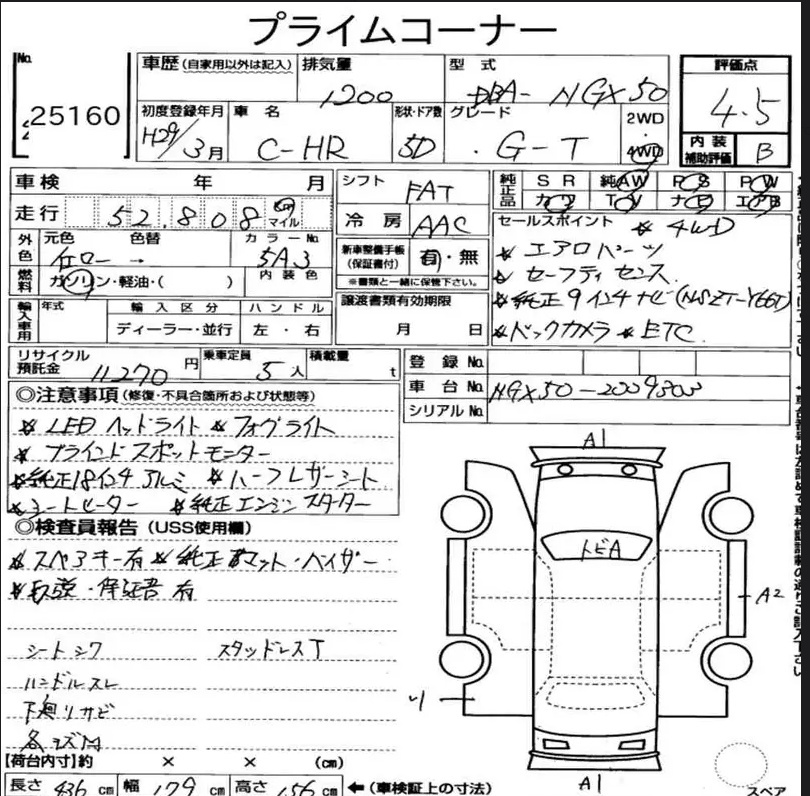 プライムコーナー
No. 25160
車歴 (自家用以外は記入) 排気量 1200 型式 DBA-NGX50 評価点 4.5
初度登録年月 H29/3月 車名 C-HR 形状・ドア数 5D グレード G-T 2WD・4WD 内装補助評価 B
車検 年 月 シフト FAT 純正品 SR 純AW PS PW
走行 52,808 km マイル 冷房 AAC カワ TV ナビ エアB
外色 元色 色替 カラーNo.
黄ロー → 5A3
新車整備手帳(保証書付) 有・無
※書類と一緒に保管下さい。
燃料 ガソリン・軽油・( ) 内装色
輸入車用 年式 輸入区分 ハンドル
ディーラー・並行 左・右
譲渡書類有効期限
月 日
セールスポイント * 4WD
* エアロパーツ
* セーフティセンス
* 純正9インチナビ(NSZT-Y66T)
* バックカメラ * ETC
リサイクル預託金 11270円 乗車定員 5人 積載量 t
登録No.
車台No. NGX50-2009303
シリアルNo.
◎注意事項 (修復・不具合箇所および状態等)
* LEDヘッドライト * フォグライト
* ブラインドスポットモニター
* 純正18インチアルミ * ハーフレザーシート
* シートヒーター * 純正エンジンスターター
◎検査員報告 (USS使用欄)
* スペアキー有 * 純正マット・バイザー
* 取説・保証書有
シートシワ スタッドレスT
ハンドルスレ
下廻リサビ
各キズ
A1
トビA
A2
A1
スペア
【荷台内寸】約 × × (cm)
長さ 436 cm 幅 179 cm 高さ 156 cm ←(車検証上の寸法)